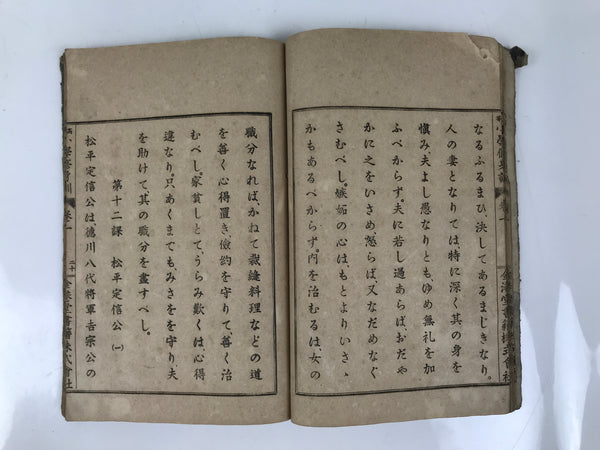 なるふるまひ、決してあるまじきなり。
人の妻となりては、特に深く其の身を
愼み夫よし愚なりとも、ゆめ無礼を加
ふべからず。夫に若し過あらば、おだや
かに之をいさめ、怒らば又なだめなぐ
さむべし。嫉妬の心はもとよりいさゝ
かもあるべからず。内を治むるは、女の
職分なれば、かねて裁縫料理などの道
を善く心得置き、儉約を守りて、善く治
むべし。家貧しとて、うらみ歎くは心得
違なり。只あくまでも、みさをを守り夫
を助けて、其の職分を盡すべし。
第十二課 松平定信公 (一)
松平定信公は德川八代將軍吉宗公の
二十